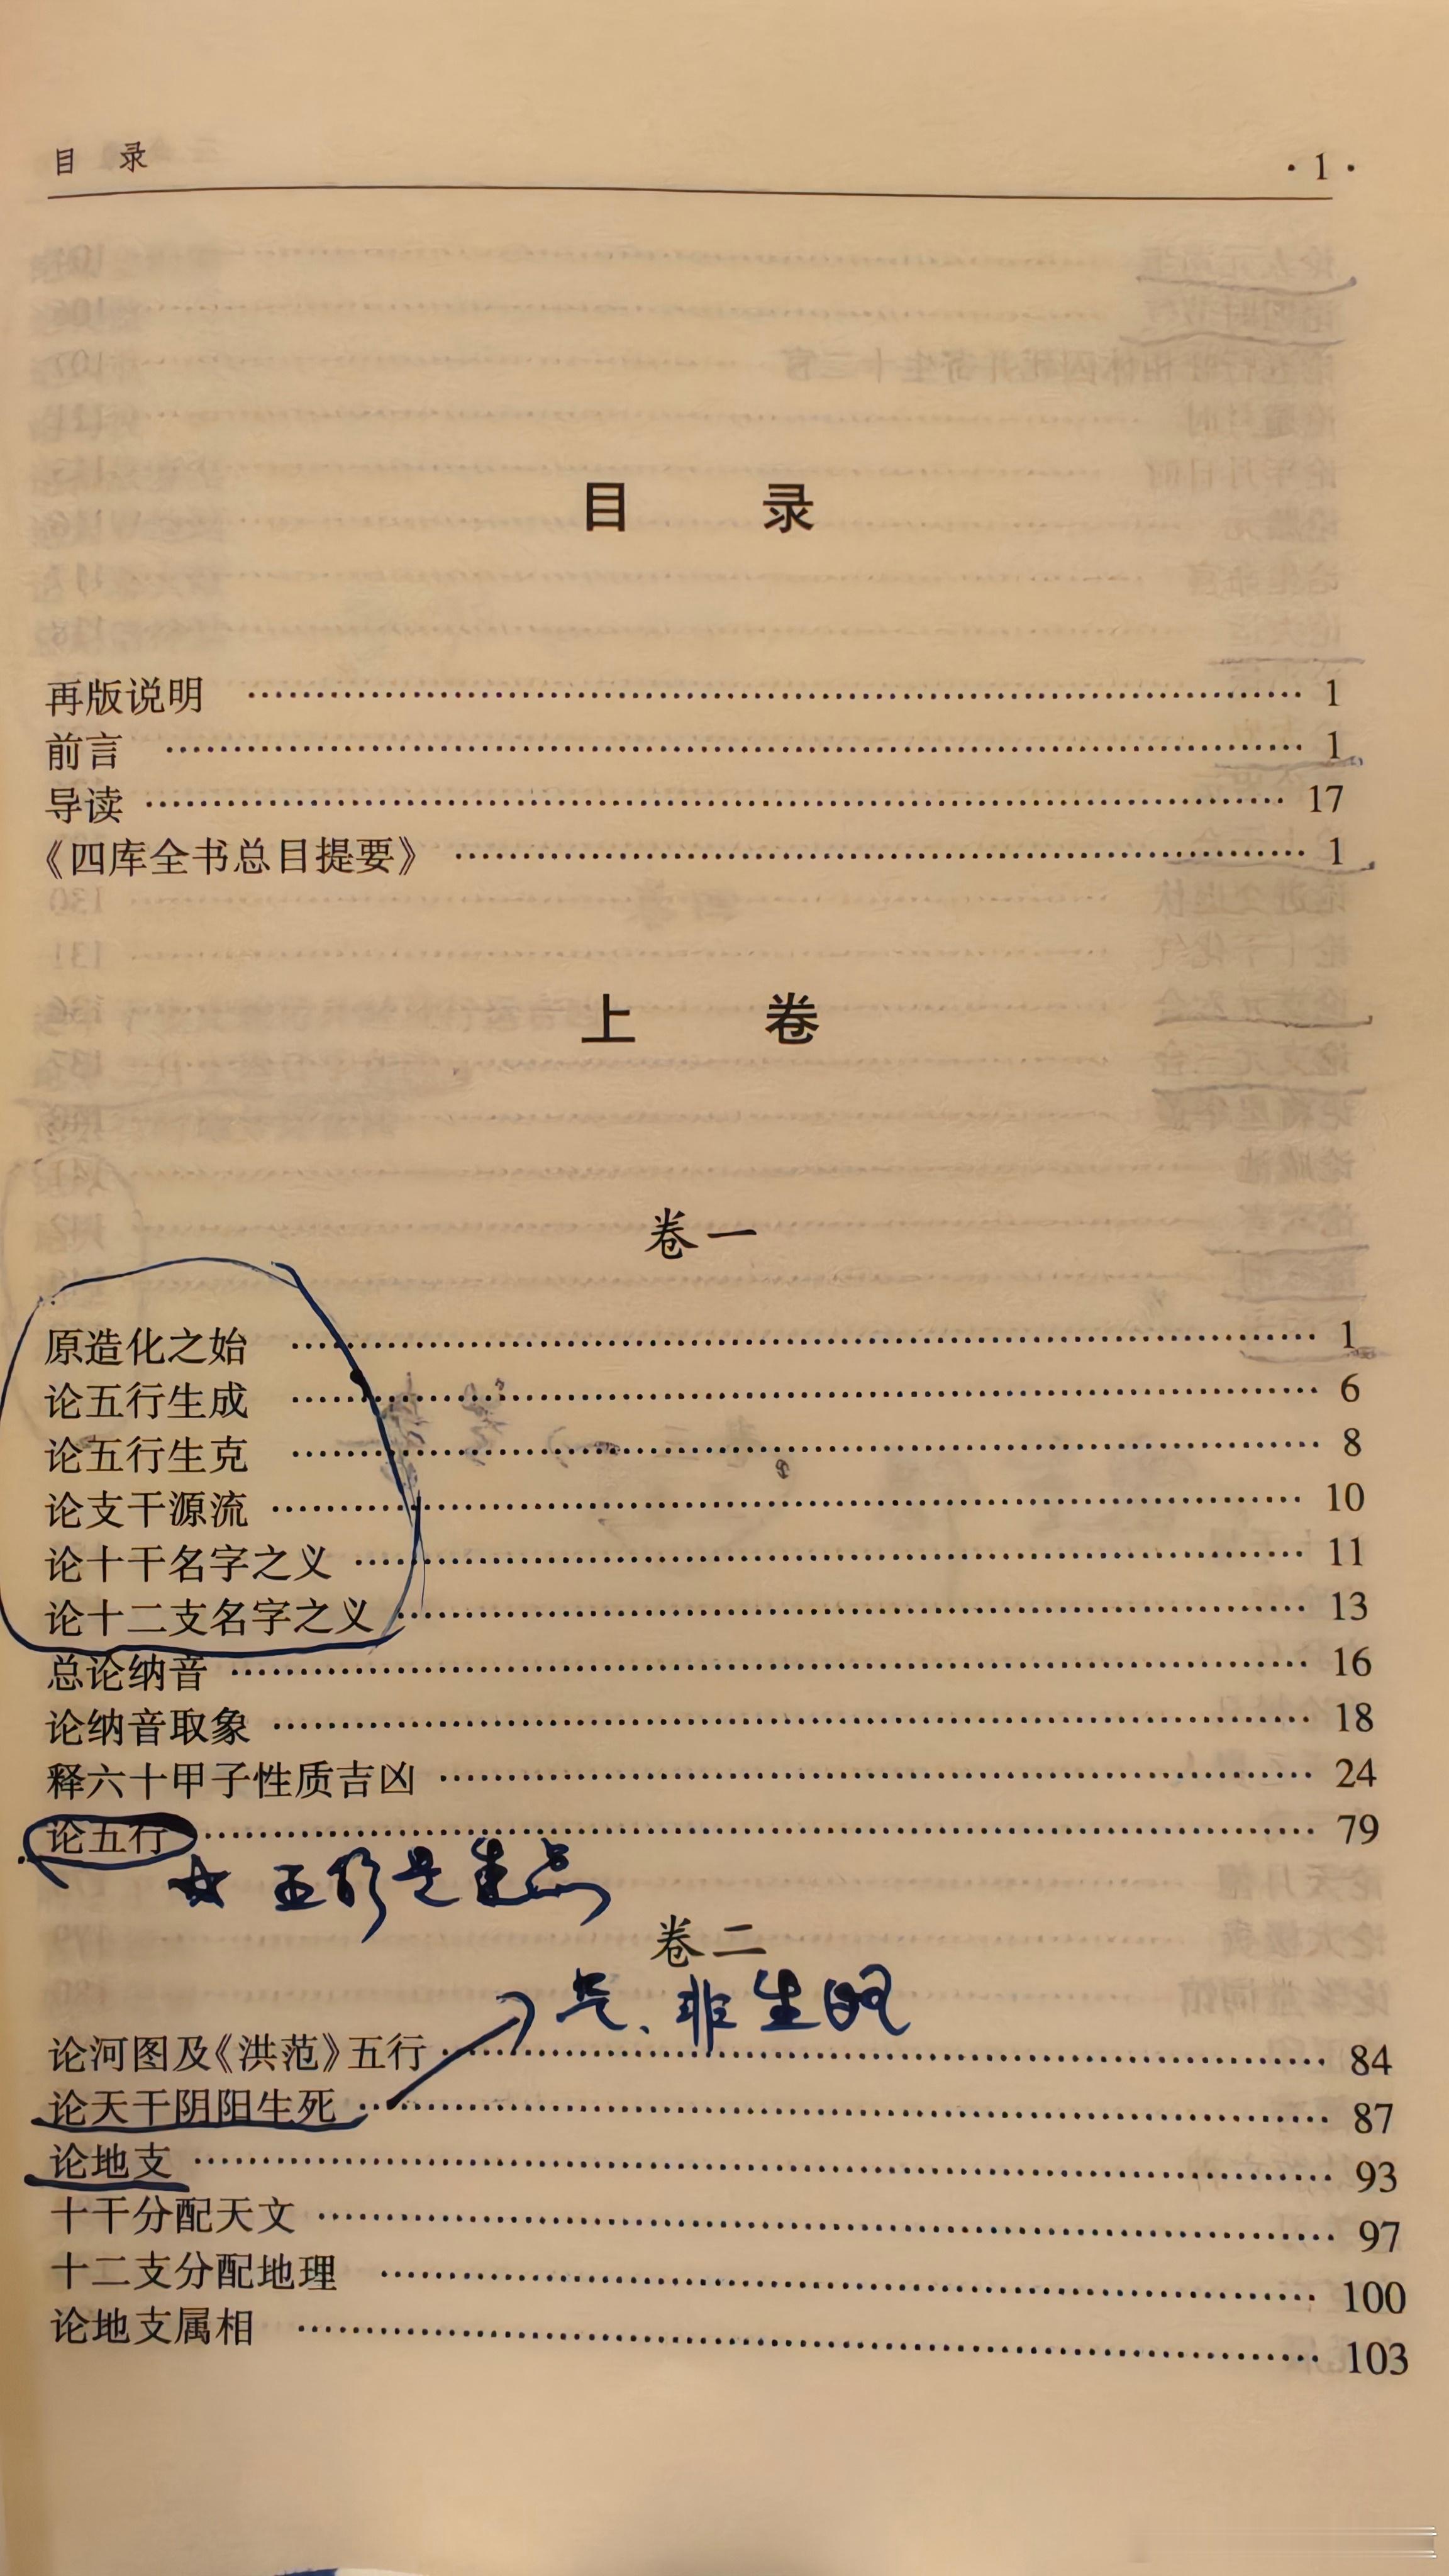 目 录 · 1 ·
目 录
再版说明 …… 1
前言 …… 1
导读 …… 17
《四库全书总目提要》 …… 1
上 卷
卷一
原造化之始 …… 1
论五行生成 …… 6
论五行生克 …… 8
论支干源流 …… 10
论十干名字之义 …… 11
论十二支名字之义 …… 13
总论纳音 …… 16
论纳音取象 …… 18
释六十甲子性质吉凶 …… 24
论五行 …… 79
五行是重点
卷二
非生的
论河图及《洪范》五行 …… 84
论天干阴阳生死 …… 87
论地支 …… 93
十干分配天文 …… 97
十二支分配地理 …… 100
论地支属相 …… 103